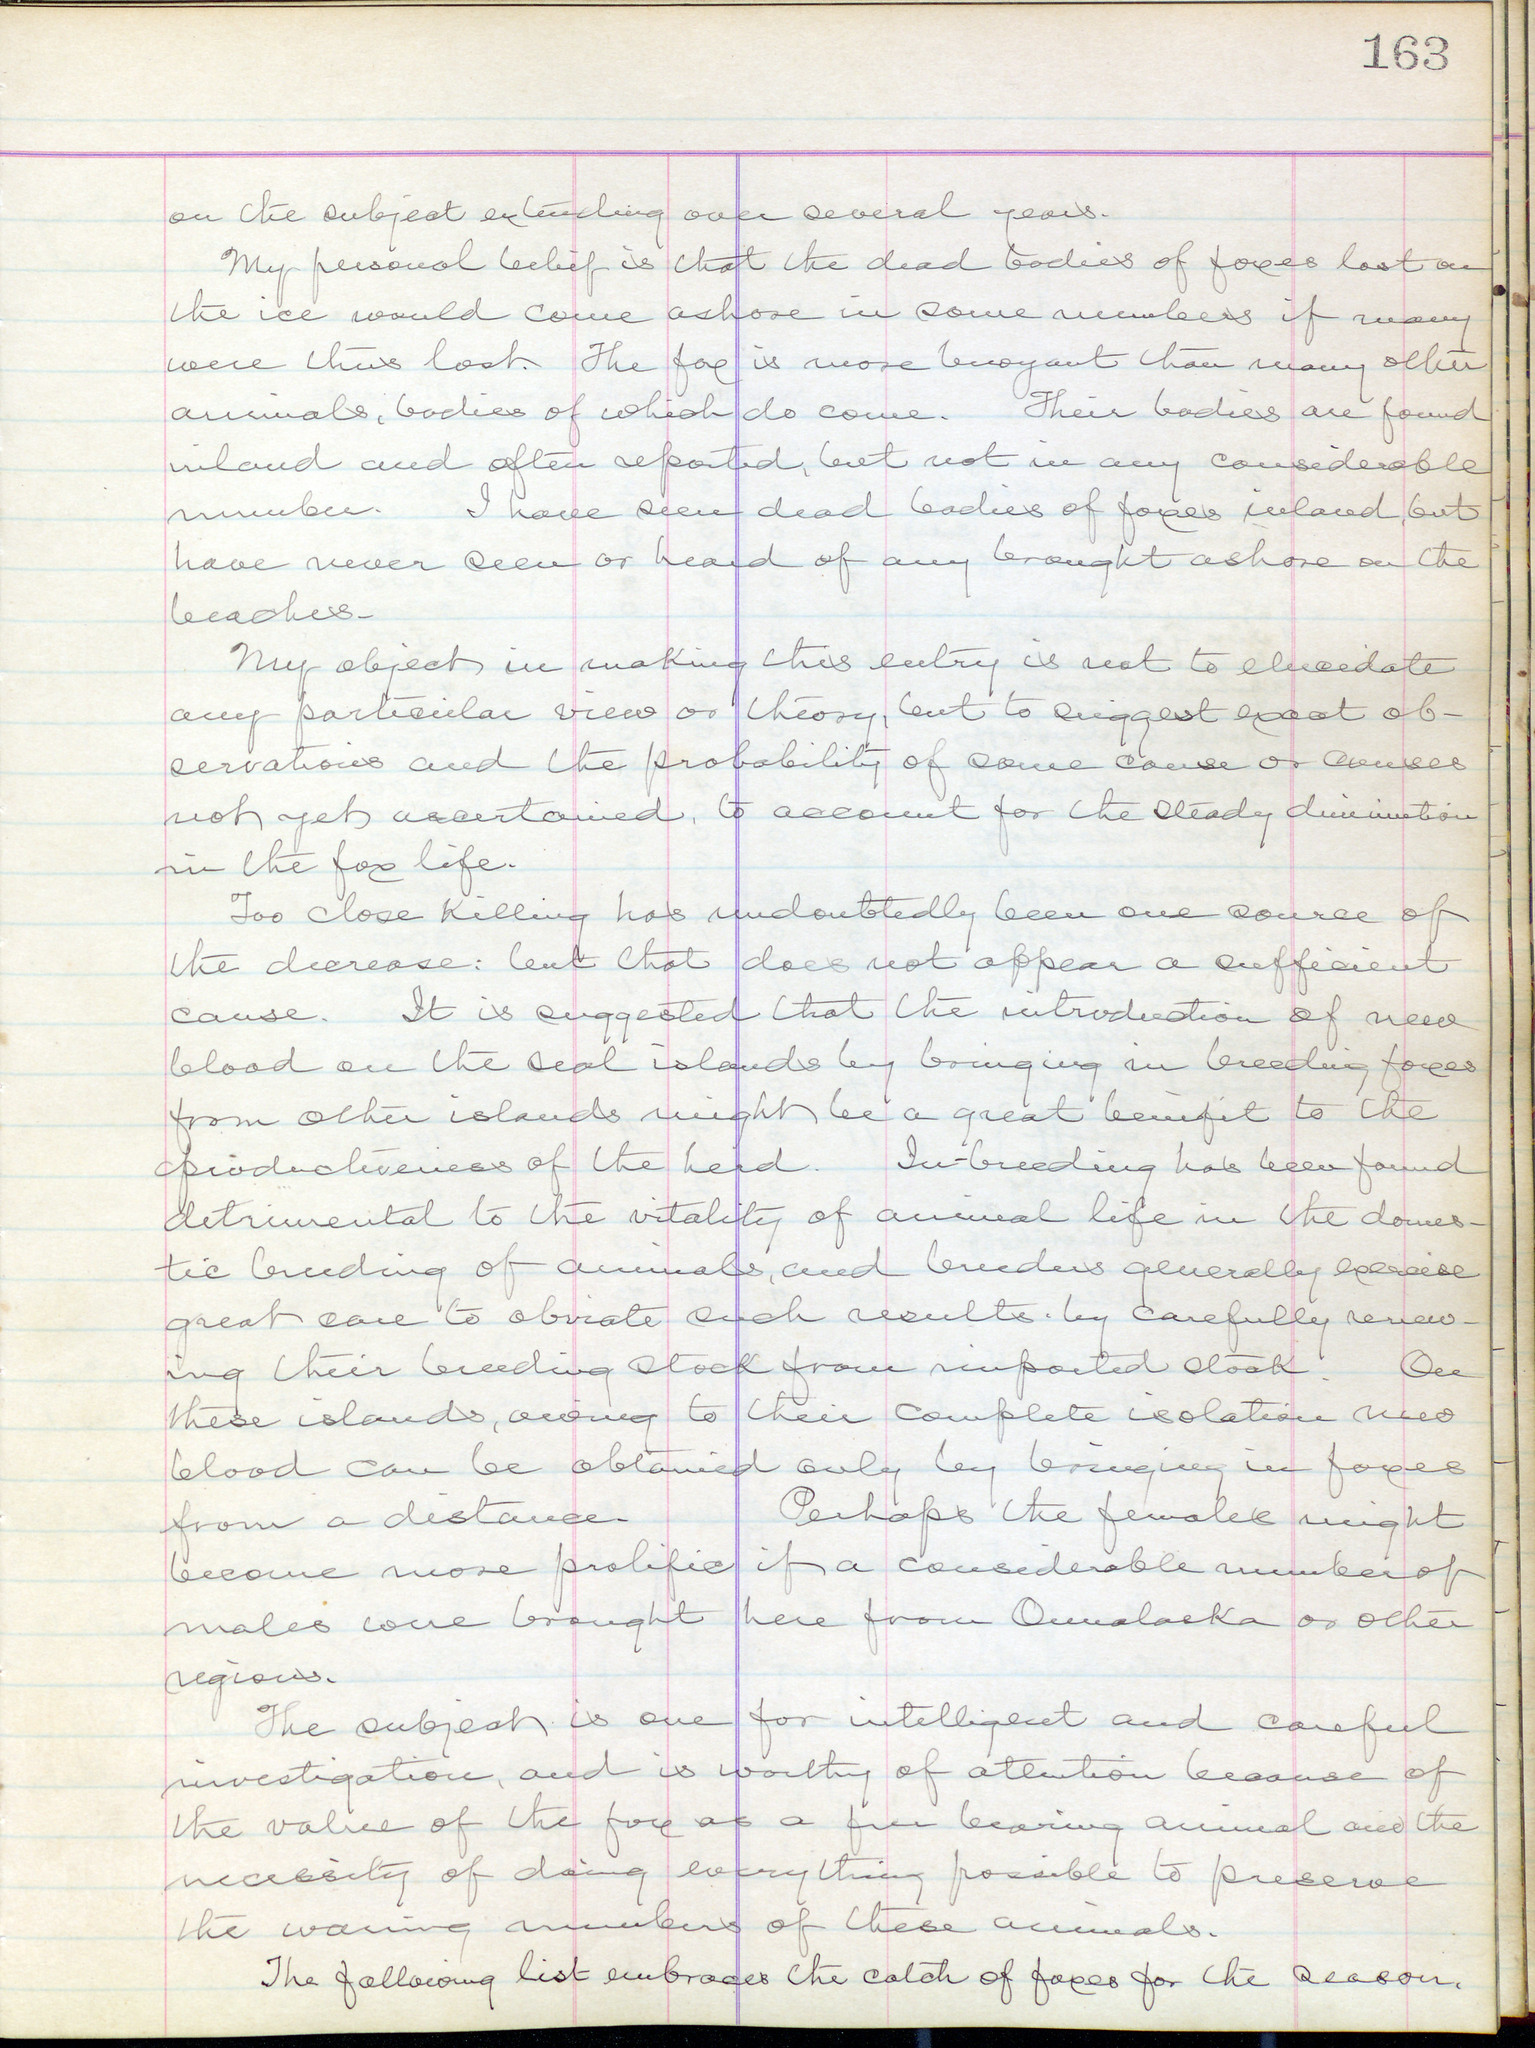 163
on the subject extending over several years.
My personal belief is that the dead bodies of foxes lost on
the ice would come ashore in some numbers if many
were thus lost. The fox is more buoyant than many other
animals, bodies of which do come. Their bodies are found
inland and often reported, but not in any considerable
number. I have seen dead bodies of foxes inland but
have never seen or heard of any brought ashore on the
beaches.
My object in making this entry is not to elucidate
any particular view or theory, but to suggest exact ob-
servations and the probability of some cause or causes
not yet ascertained, to account for the steady diminution
in the fox life.
Too close killing has undoubtedly been one source of
the decrease: but that does not appear a sufficient
cause. It is suggested that the introduction of new
blood on the seal islands by bringing in breeding foxes
from other islands might be a great benifit to the
productiveness of the herd. In-breeding has been found
detrimental to the vitality of animal life in the domes-
tic breeding of animals, and breeders generally exercise
great care to obviate such results by carefully renew-
ing their breeding stock from imported stock. On
these islands, owing to their complete isolation new
blood can be obtained only by bringing in foxes
from a distance. Perhaps the females might
become more prolific if a considerable number of
males were brought here from Ounalaska or other
regions.
The subject is one for intelligent and careful
investigation, and is worthy of attention because of
the value of the fox as a fur bearing animal and the
necessity of doing everything possible to preserve
the waning numbers of these animals.
The following list embraces the catch of foxes for the season.